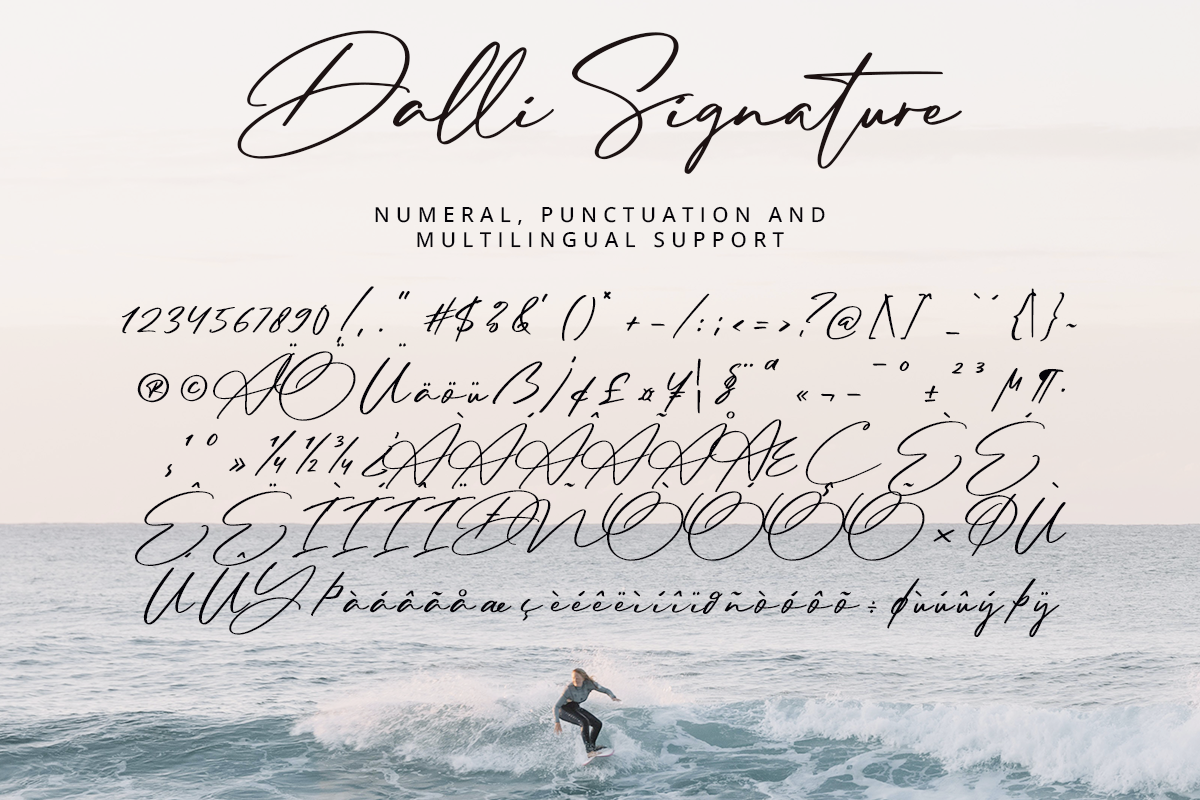 Dalli Signature
NUMERAL, PUNCTUATION AND
MULTILINGUAL SUPPORT
1234567890!,." #$%&'()* +-/:;<=>?@[\]_`´{|}~
®©ÄÖÜäöüß¡¢£¤¥¦§¨ª«¬-¯°±²³µ¶·
¸¹º»¼½¾¿ÀÁÂÃÅÆÇÈÉ
ÊËÌÍÎÏÐÑÒÓÔÕ×ØÙ
ÚÛÝÞàáâãåæçèéêëìíîïðñòóôõ÷øùúûýþÿ